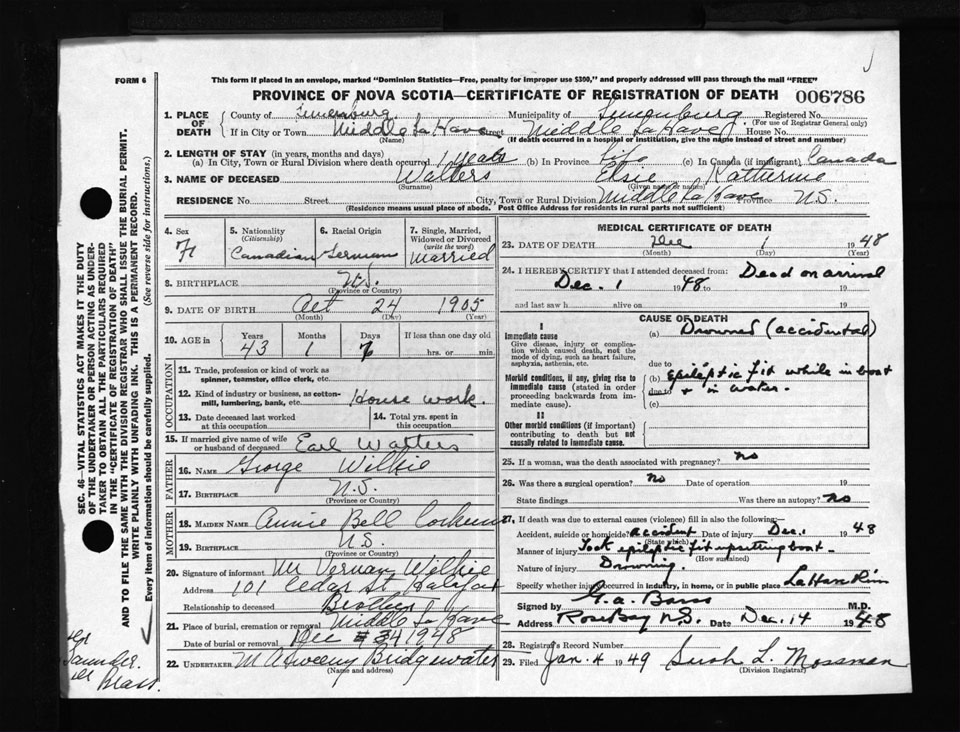 FORM 6
This form if placed in an envelope, marked "Dominion Statistics—Free, penalty for improper use $300," and properly addressed will pass through the mail "FREE"
PROVINCE OF NOVA SCOTIA—CERTIFICATE OF REGISTRATION OF DEATH 006786
1. PLACE OF DEATH County of Lunenburg Municipality of Lunenburg Registered No. (For use of Registrar General only)
If in City or Town Middle La Have Street Middle La Have House No.
(Name) (If death occurred in a hospital or institution, give the name instead of street and number)
2. LENGTH OF STAY (in years, months and days)
(a) In City, Town or Rural Division where death occurred years (b) In Province Life (c) In Canada (if immigrant) Canada
3. NAME OF DECEASED Walters Elsie Katherine
(Surname) (Given name or names)
RESIDENCE No. Street City, Town or Rural Division Middle La Have Province N.S.
(Residence means usual place of abode. Post Office Address for residents in rural parts not sufficient)
4. Sex F
5. Nationality (Citizenship) Canadian
6. Racial Origin German
7. Single, Married, Widowed or Divorced (write the word) Married
8. BIRTHPLACE N.S.
(Province or Country)
9. DATE OF BIRTH Oct 24 1905
(Month) (Day) (Year)
10. AGE in Years Months Days If less than one day old
43 1 7 hrs. or min.
OCCUPATION
11. Trade, profession or kind of work as spinner, teamster, office clerk, etc.
12. Kind of industry or business, as cotton-mill, lumbering, bank, etc. House work.
13. Date deceased last worked at this occupation
14. Total yrs. spent in this occupation
15. If married give name of wife or husband of deceased Earl Walters
FATHER
16. NAME George Wilkie
17. BIRTHPLACE N.S.
(Province or Country)
MOTHER
18. MAIDEN NAME Annie Bell Corkum
19. BIRTHPLACE N.S.
(Province or Country)
20. Signature of informant Mr Vernan Wilkie
Address 101 Cedar St Halifax
Relationship to deceased Brother
21. Place of burial, cremation or removal Middle La Have
Date of burial or removal Dec 1948
22. UNDERTAKER Bridgewater
(Name and address)
MEDICAL CERTIFICATE OF DEATH
23. DATE OF DEATH Dec 1 1948
(Month) (Day) (Year)
24. I HEREBY CERTIFY that I attended deceased from: Dead on arrival
Dec. 1 1948 to 19
and last saw h alive on 19
CAUSE OF DEATH
I
Immediate cause (a) Drowned (accidental)
Give disease, injury or complication which caused death, not the mode of dying, such as heart failure, asphyxia, asthenia, etc.
due to
Morbid conditions, if any, giving rise to immediate cause (stated in order proceeding backwards from immediate cause).
(b) Epileptic fit while in boat
due to & in water.
(c)
II
Other morbid conditions (if important) contributing to death but not causally related to immediate cause.
25. If a woman, was the death associated with pregnancy? No
26. Was there a surgical operation? No Date of operation 19
State findings Was there an autopsy? No
27. If death was due to external causes (violence) fill in also the following:—
Accident, suicide or homicide? accident Date of injury Dec. 1948
(State which)
Manner of injury Took epileptic fit upsetting boat—
(How sustained)
Nature of injury Drowning.
Specify whether injury occurred in industry, in home, or in public place
Signed by G.A. M.D.
Address Rose Bay N.S. Date Dec. 14 1948
28. Registrar's Record Number
29. Filed Jan. 4 1949 L. Mossman
(Division Registrar)
SEC. 46—VITAL STATISTICS ACT MAKES IT THE DUTY
OF THE UNDERTAKER OR PERSON ACTING AS UNDER-
TAKER TO OBTAIN ALL THE PARTICULARS REQUIRED
IN THE "CERTIFICATE OF REGISTRATION OF DEATH"
AND TO FILE THE SAME WITH THE DIVISION REGISTRAR WHO SHALL ISSUE THE BURIAL PERMIT.
WRITE PLAINLY WITH UNFADING INK. THIS IS A PERMANENT RECORD.
Every item of information should be carefully supplied. (See reverse side for instructions.)